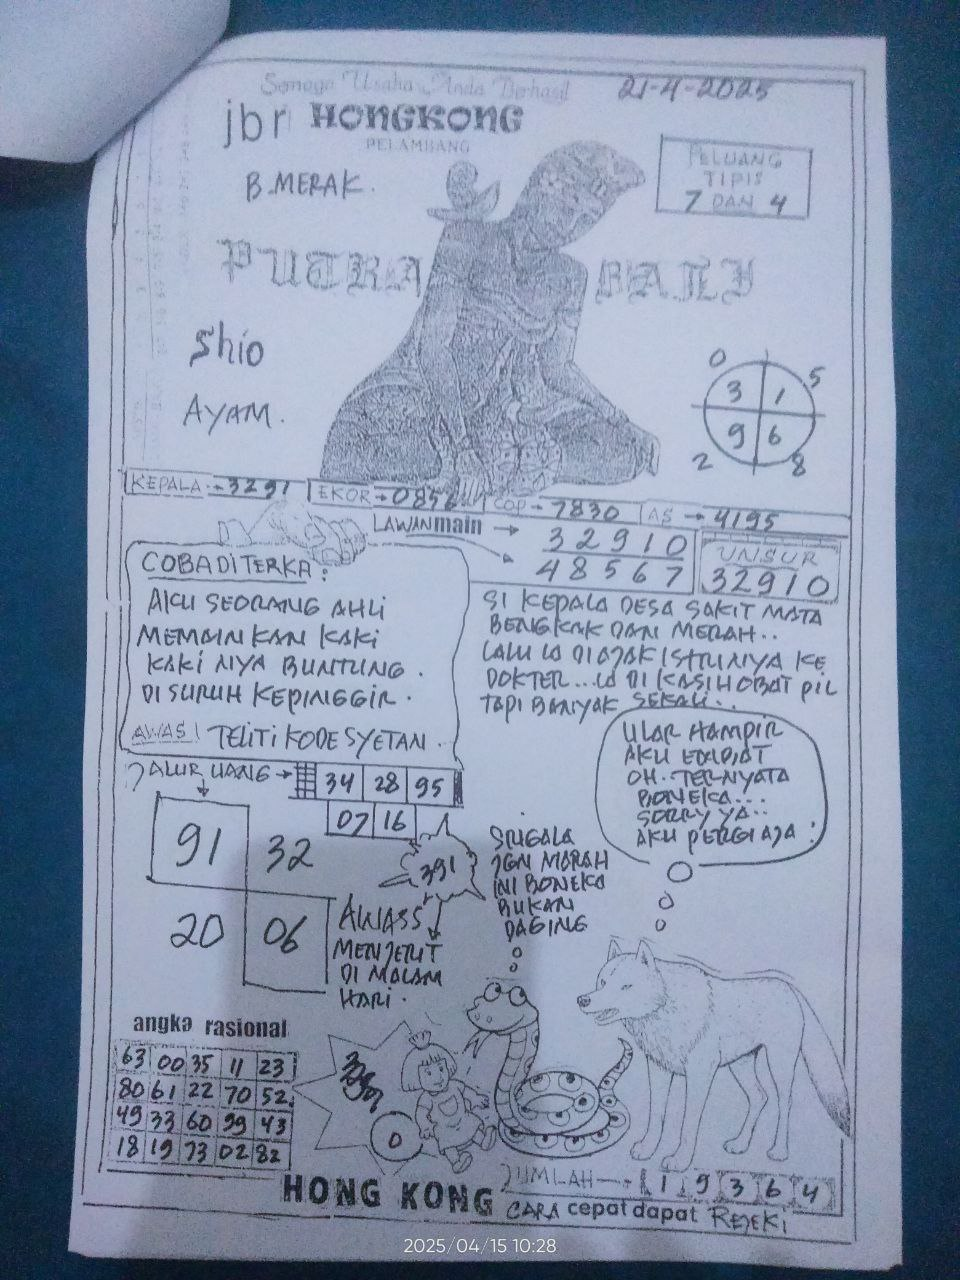 Semoga Usaha Anda Berhasil
21-4-2025
jbr HONGKONG
PELAMBANG
B.MERAK.
PELUANG
TIPIS
7 DAN 4
PUTRA BALI
Shio
AYAM.
0 5
3 1
9 6
2 8
KEPALA → 3291
EKOR → 0856
COP → 7830
AS → 4195
LAWAN main →
32910
48567
UNSUR
32910
COBA DITERKA :
AKU SEORANG AHLI
MEMAINKAN KAKI
KAKI NYA BUNTUNG .
DI SURUH KEPINGGIR .
AWAS! TELITI KODE SYETAN .
SI KEPALA DESA SAKIT MATA
BENGKAK DAN MERAH..
LALU IA DIAJAK ISTRINYA KE
DOKTER... IA DI KASIH OBAT PIL
TAPI BANYAK SEKALI...
JALUR UANG →
34 28 95
07 16
91 32
20 06
391
AWASS
MENJERIT
DI MALAM
HARI .
ULAR HAMPIR
AKU
OH. TERNYATA
BONEKA...
SORRY YA..
AKU PERGI AJA !
SRIGALA
JGN MARAH
INI BONEKA
BUKAN
DAGING
angka rasional
63 00 35 11 23
80 61 22 70 52
49 33 60 99 43
18 19 73 02 82
0
JUMLAH → 1 9 3 6 4
HONG KONG CARA cepat dapat REJEKI
2025/04/15 10:28